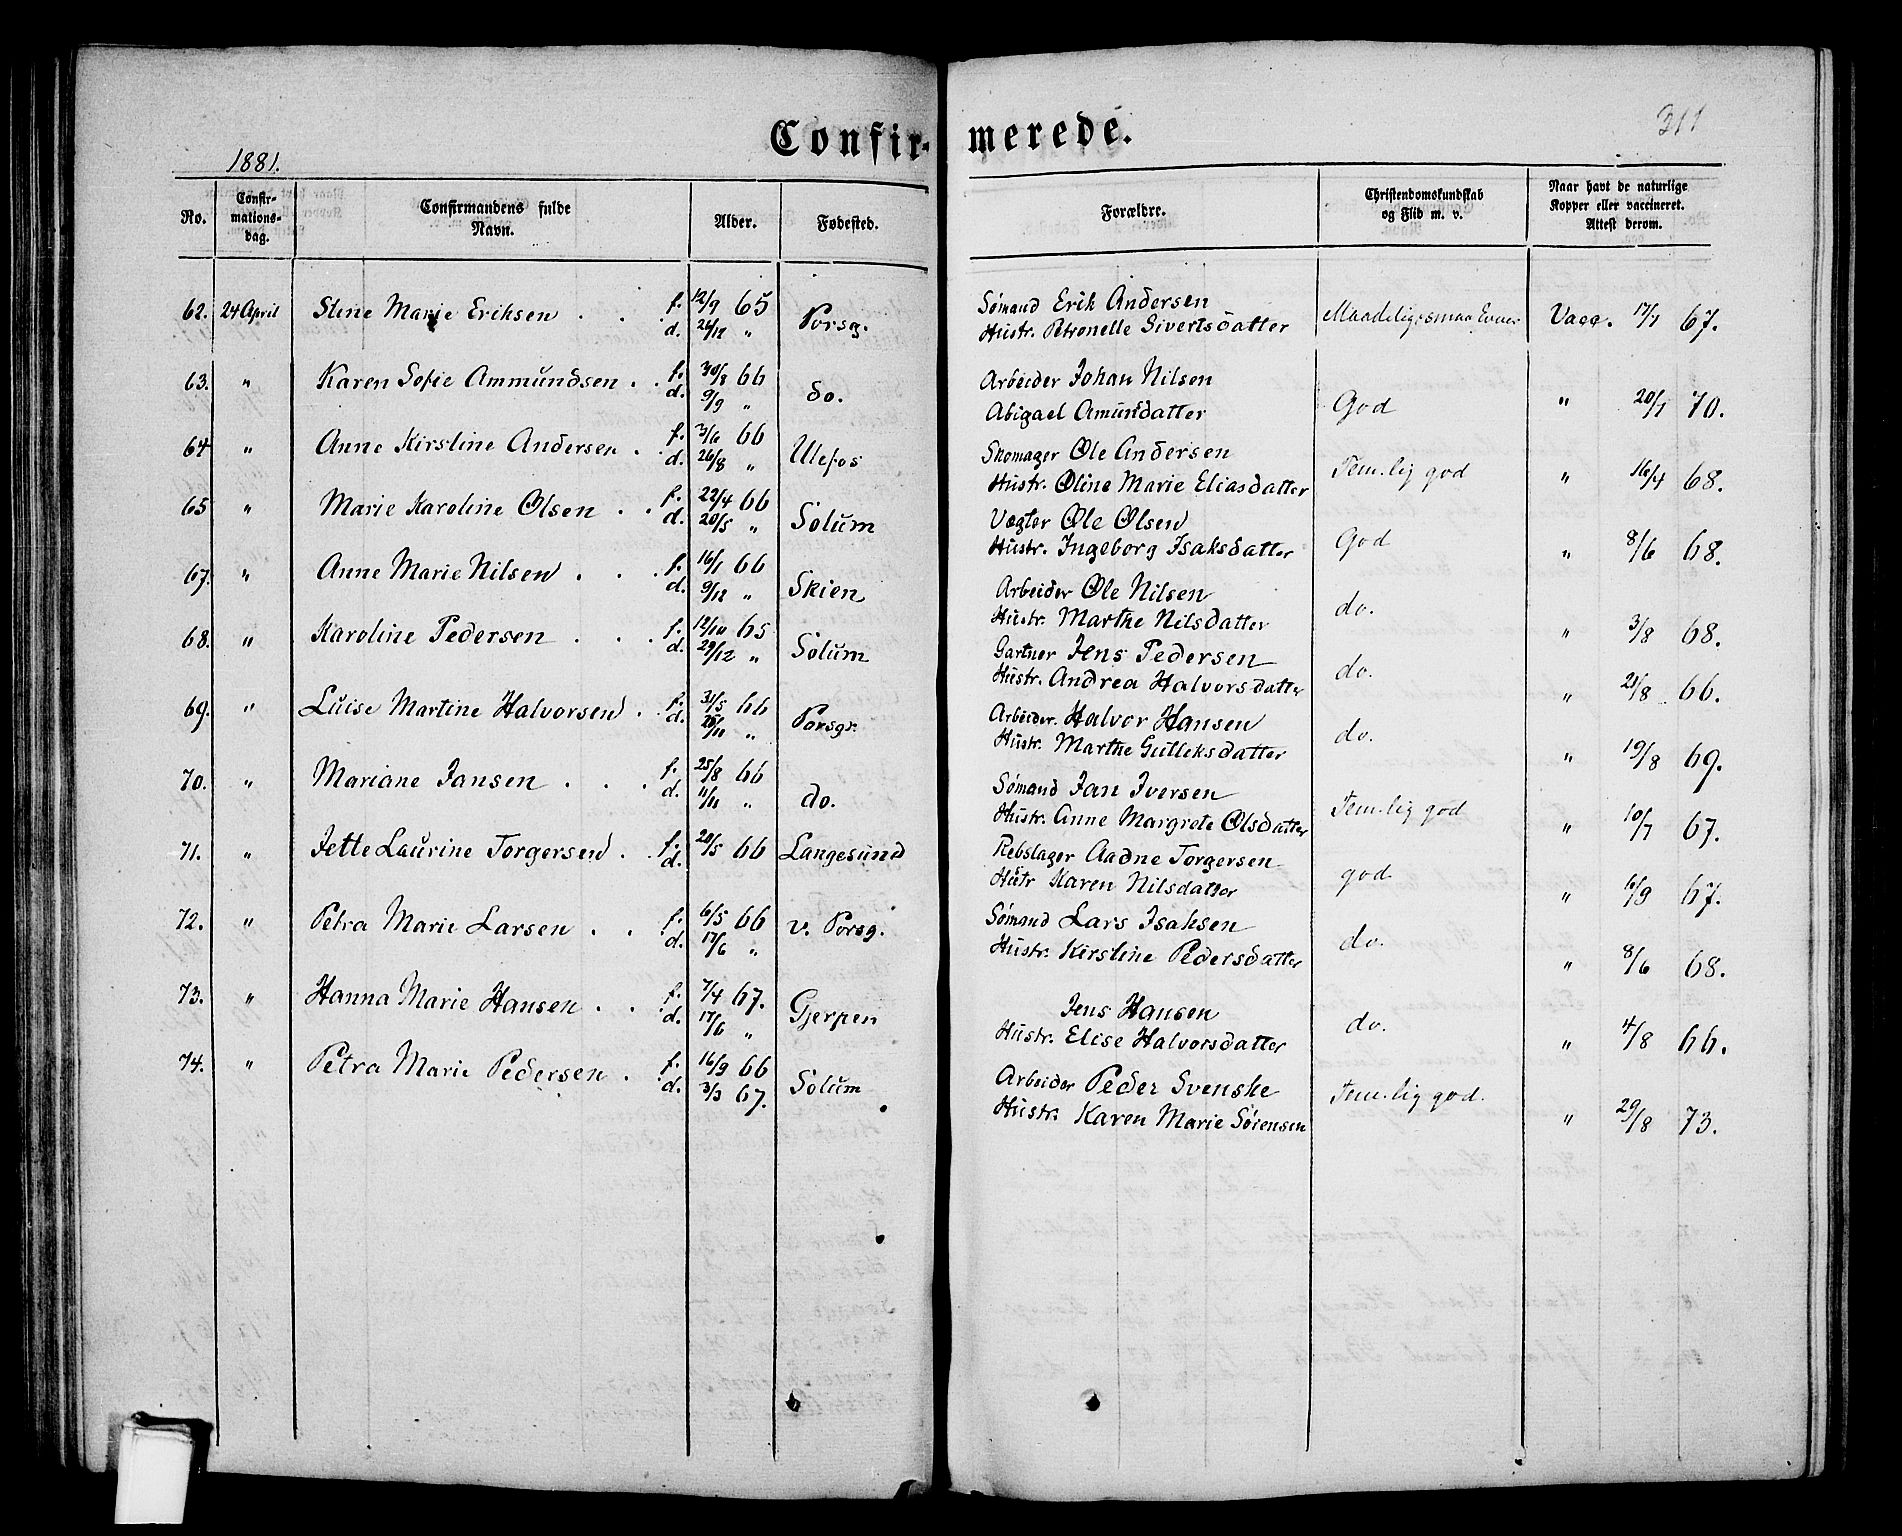 Confir- merede.
311
1881.
No. Confir-mations-dag. Confirmandens fulde Navn. Alder. Fødested. Forældre. Christendomskundskab og Flid m. v. Naar havt de naturlige Kopper eller vaccineret. Attest derom.
62. 24 April Stine Marie Eriksen . . f. 12/9 65 Porsg. Sømand Erik Andersen Vacc. 17/7 67.
d. 26/12 " Hustr. Petronelle Sivertsdatter
63. " Karen Sofie Ammundsen . . f. 30/8 66 do. Arbeider Johan Nilsen God " 20/7 70.
d. 9/9 " Abigael Amundsdatter
64 " Anne Kirstine Andersen . f. 3/6 66 Ulefos Skomager Ole Andersen Temlig god " 16/4 68.
d. 26/8 " Hustr. Oline Marie Eliasdatter
65 " Marie Karoline Olsen . . f. 22/4 66 Solum Vægter Ole Olsen God " 8/6 68.
d. 20/5 " Hustr. Ingeborg Isaksdatter
67. " Anne Marie Nilsen . . . f. 16/1 66 Skien Arbeider Ole Nilsen do. " 3/8 68.
d. 9/12 " Hustr. Marthe Nilsdatter
68. " Karoline Pedersen . . . f. 12/10 65 Solum Gartner Jens Pedersen do. " 21/8 66.
d. 29/12 " Hustr. Andrea Halvorsdatter
69. " Luise Martine Halvorsen . f. 31/5 66 Porsgr. Arbeider. Halvor Hansen do. " 19/8 69.
d. /11 " Hustr. Marthe Gulleksdatter
70. " Mariane Jansen . . . f. 25/8 66 do. Sømand Jan Iversen Temlig god " 10/7 67.
d. 11/11 " Hustr. Anne Margrete Olsdatter
71. " Jette Laurine Torgersen . . f. 20/5 66 Langesund Rebslager Aadne Torgersen god " 6/9 67.
d. Hustr Karen Nilsdatter
72. " Petra Marie Larsen . . f. 6/5 66 v. Porsg. Sømand Lars Isaksen do. " 8/6 68.
d. 17/6 " Hustr. Kirstine Pedersdatter
73. " Hanna Marie Hansen . . f. 7/4 67. Gjerpen Jens Hansen do. " 4/8 66.
d. 17/6 " Hustr. Elise Halvorsdatter
74. " Petra Marie Pedersen . f. 16/9 66 Solum Arbeider Peder Svenske Temlig god. " 29/8 73.
d. 3/3 67. Hustr. Karen Marie Sørensen